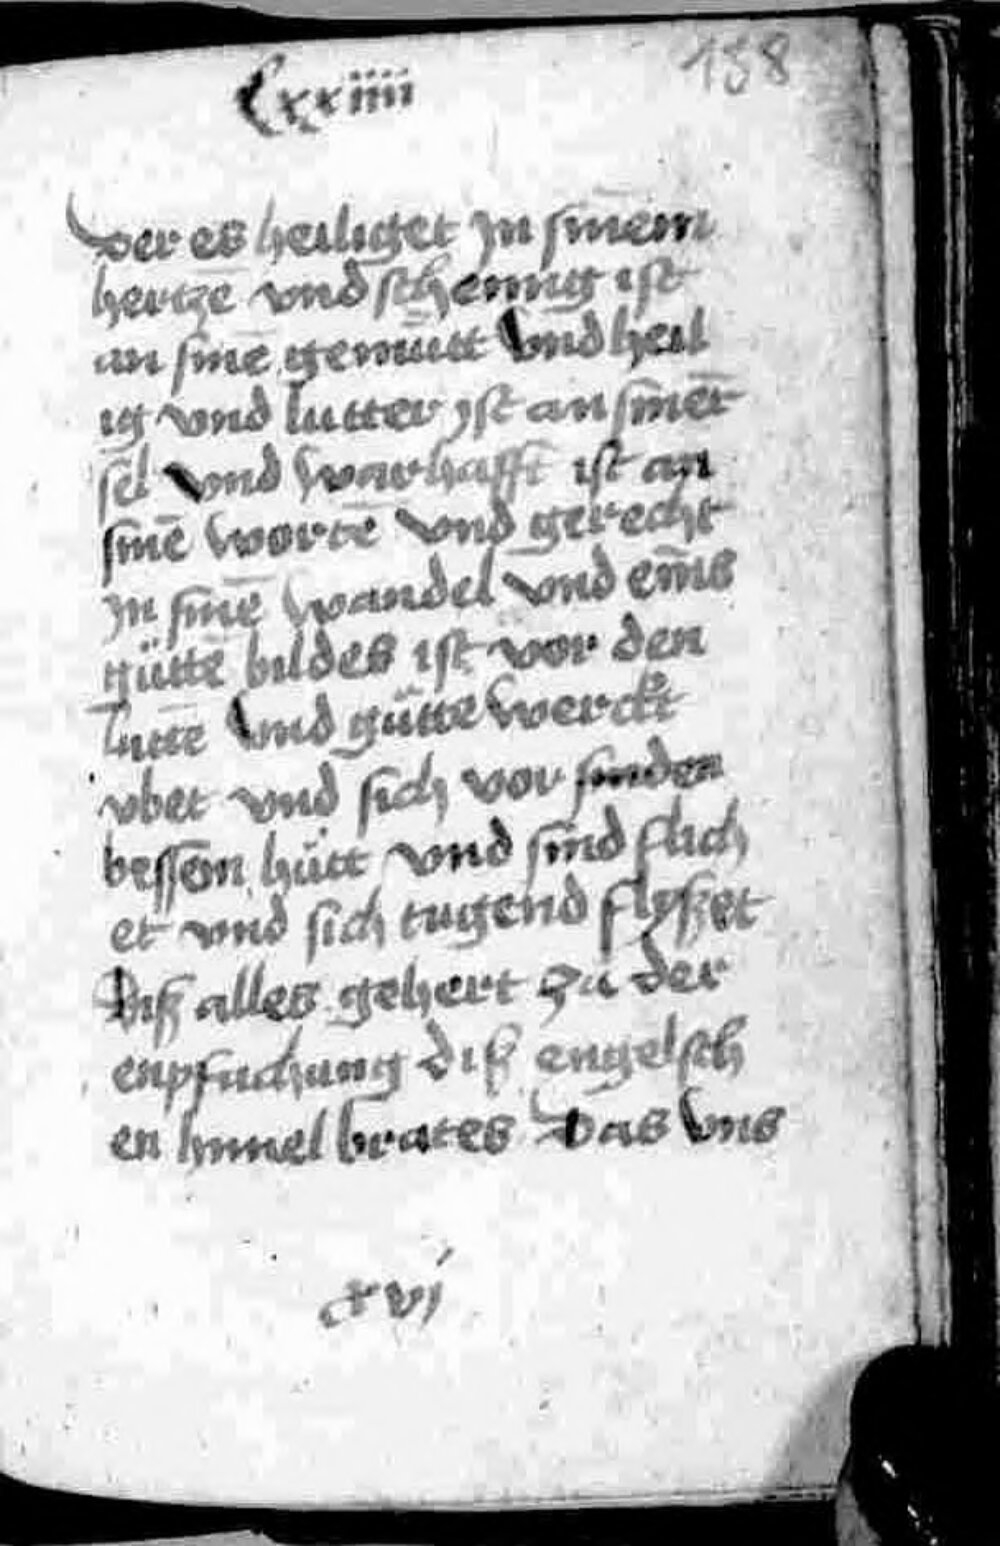 Lxxiiii 138
Der es heiliget Jn sinem
hertze vnd schemig ist
an sinē gemütt Vnd heil
ig vnd lutter yst an siner
sel vnd warhafft ist an
sinē wortē vnd gerecht
Jn sinē wandel vnd eīns
gūttē bildes ist vor den
luttē Vnd güttē werck
vbet vnd sich vor sinden
hütt vnd sind flich
et vnd sich tugend flysset
Diß alles gehert zu der
enpfachung diß engelsch
en himel brates Das vns
xvi